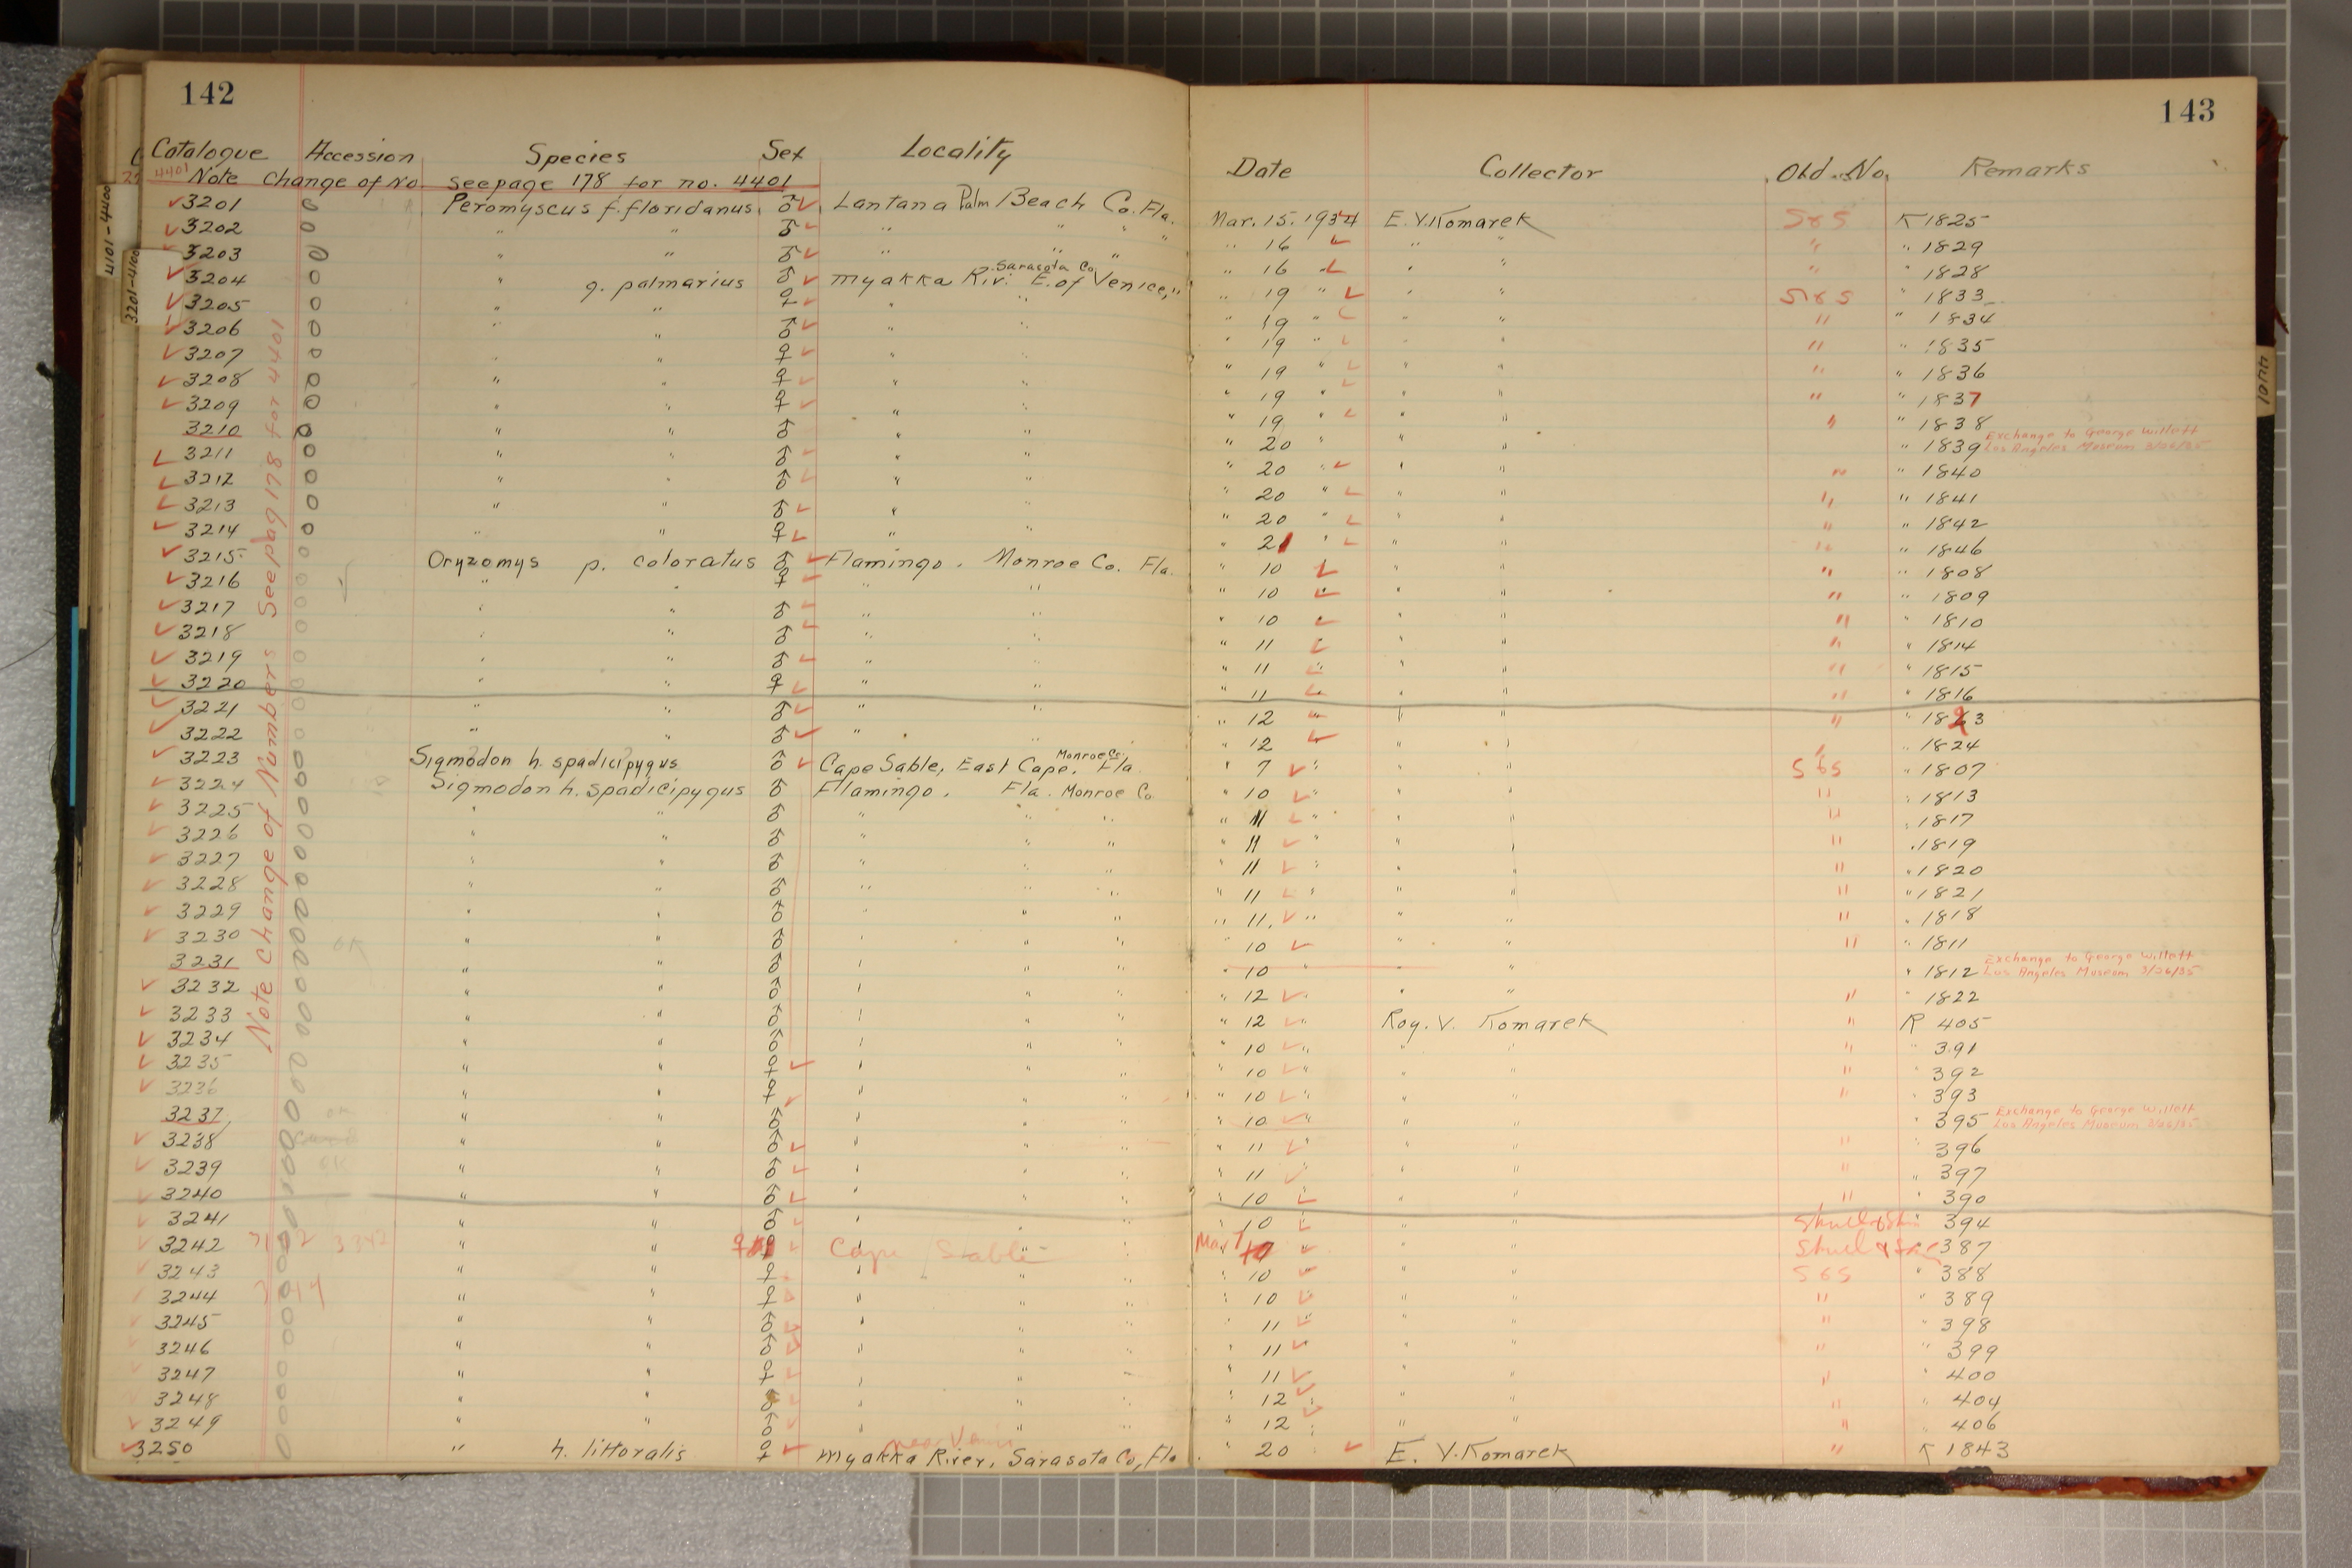 142
143
Catalogue Accession Species Sex Locality Date Collector Old No. Remarks
4401 Note Change of No. see page 178 for no. 4401
Note Change of Numbers See pag 178 for 4401
4101-4400
3201-4100
3201 0 Peromyscus f. floridanus ♂ Lantana Palm Beach Co. Fla. Mar. 15. 1934 E. V. Komarek S&S K 1825
3202 0 " " ♂ " " " " " 16 " " " " 1829
3203 0 " " ♂ " " " " 16 " " " " 1828
3204 0 " g. palmarius ♂ Myakka Riv. E. of Venice, " Sarasota Co. " 19 " " " S&S " 1833
3205 0 " " ♀ " " " 19 " " " " " 1834
3206 0 " " ♂ " " " 19 " " " " " 1835
3207 0 " " ♀ " " " 19 " " " " " 1836
3208 0 " " ♀ " " " 19 " " " " " 1837
3209 0 " " ♀ " " " 19 " " " " " 1838
3210 0 " " ♂ " " " 20 " " " " 1839 Exchange to George Willett Los Angeles Museum 3/26/35
3211 0 " " ♂ " " " 20 " " " " " 1840
3212 0 " " ♂ " " " 20 " " " " " 1841
3213 0 " " ♂ " " " 20 " " " " " 1842
3214 0 " " ♀ " " " 21 " " " " " 1846
3215 0 Oryzomys p. coloratus ♂ Flamingo. Monroe Co. Fla. " 10 " " " " 1808
3216 0 " " ♀ " " " 10 " " " " 1809
3217 0 " " ♂ " " " 10 " " " " 1810
3218 0 " " ♂ " " " 11 " " " " 1814
3219 0 " " ♂ " " " 11 " " " " " 1815
3220 0 " " ♀ " " " 11 " " " " 1816
3221 0 " " ♂ " " " 12 " " " " " 1823
3222 0 " " ♂ " " " 12 " " " " 1824
3223 0 Sigmodon h. spadicipygus ♂ Cape Sable, East Cape, Fla. Monroe Co. " 7 " " " S&S " 1807
3224 0 Sigmodon h. spadicipygus ♂ Flamingo. Fla. Monroe Co " 10 " " " " " 1813
3225 0 " " ♂ " " " " 11 " " " " " 1817
3226 0 " " ♂ " " " " 11 " " " " " 1819
3227 0 " " ♂ " " " " 11 " " " " " 1820
3228 0 " " ♂ " " " " 11 " " " " " 1821
3229 0 " " ♂ " " " " 11. " " " " " 1818
3230 0 " " ♂ " " " " 10 " " " " 1811
3231 0 " " ♂ " " " " 10 " " " " 1812 Exchange to George Willett Los Angeles Museum 3/26/35
3232 0 " " ♂ " " " " 12 " " " " " 1822
3233 0 " " ♂ " " " " 12 " Roy. V. Komarek " R 405
3234 0 " " ♂ " " " " 10 " " " " " 391
3235 0 " " ♀ " " " " 10 " " " " " 392
3236 0 " " ♀ " " " " 10 " " " " " 393
3237 0 " " ♂ " " " " 10 " " " " 395 Exchange to George Willett Los Angeles Museum 3/26/35
3238 0 " " ♂ " " " " 11 " " " " " 396
3239 0 " " ♂ " " " " 11 " " " " " 397
3240 0 " " ♂ " " " " 10 " " " " 390
3241 0 " " ♂ " " " " 10 " " " " 394
3242 0 3342 " " ♀ Cape Sable Mar 7 " " Skull & 387
3243 0 " " ♀ " " " 10 " " " S&S " 388
3244 0 " " ♀ " " " " 10 " " " " " 389
3245 0 " " ♂ " " " " 11 " " " " " 398
3246 0 " " ♂ " " " " 11 " " " " " 399
3247 0 " " ♀ " " " " 11 " " " " " 400
3248 0 " " " " " " 12 " " " " " 404
3249 0 " " ♂ " " " " 12 " " " " " 406
3250 0 " h. littoralis ♀ Myakka River, Sarasota Co, Fla " 20 " E. V. Komarek " K 1843